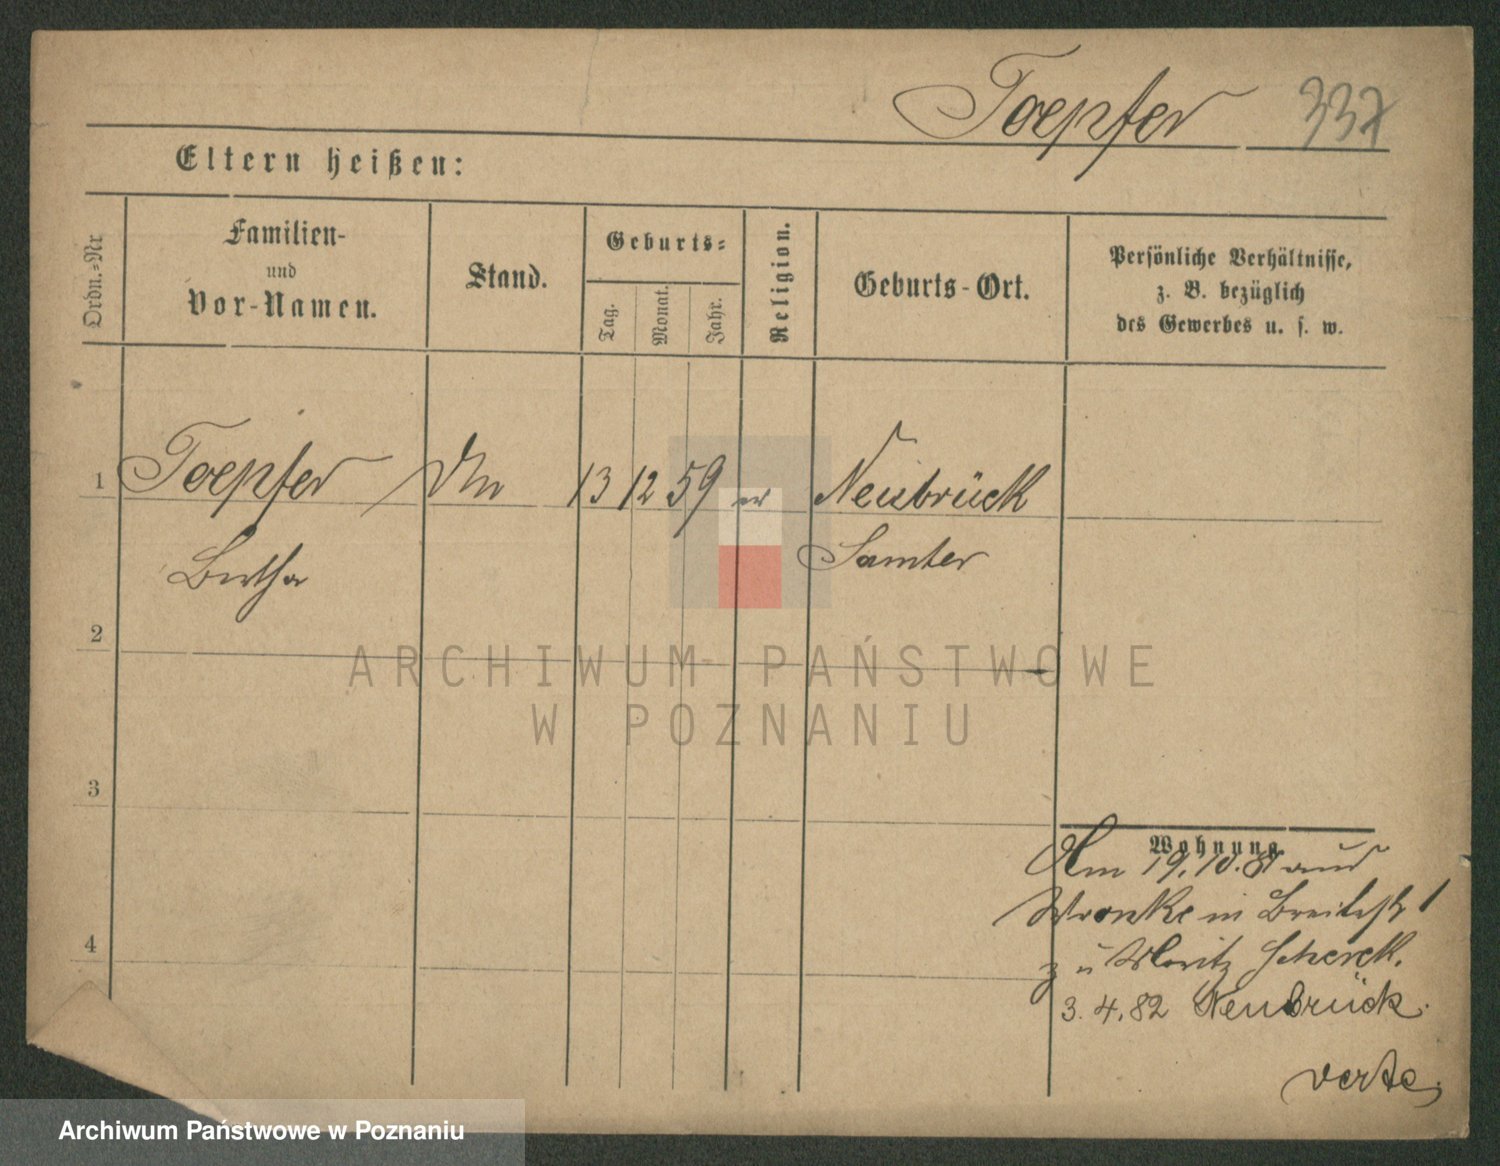 Toepfer 337
Eltern heißen:
Ordn.-Nr
Familien-
und
Vor-Namen.
Stand.
Geburts-
Tag.
Monat.
Jahr.
Religion.
Geburts-Ort.
Persönliche Verhältnisse,
z. B. bezüglich
des Gewerbes u. s. w.
1 Toepfer 13 12 59 Neubrück
Bertha Samter
2
ARCHIWUM PAŃSTWOWE
W POZNANIU
3
Wohnung
Am 19.10.81 aus
Wronke in Breitestr 1
z Moritz Scherek.
4
3.4.82 Neubrück.
verte
Archiwum Państwowe w Poznaniu